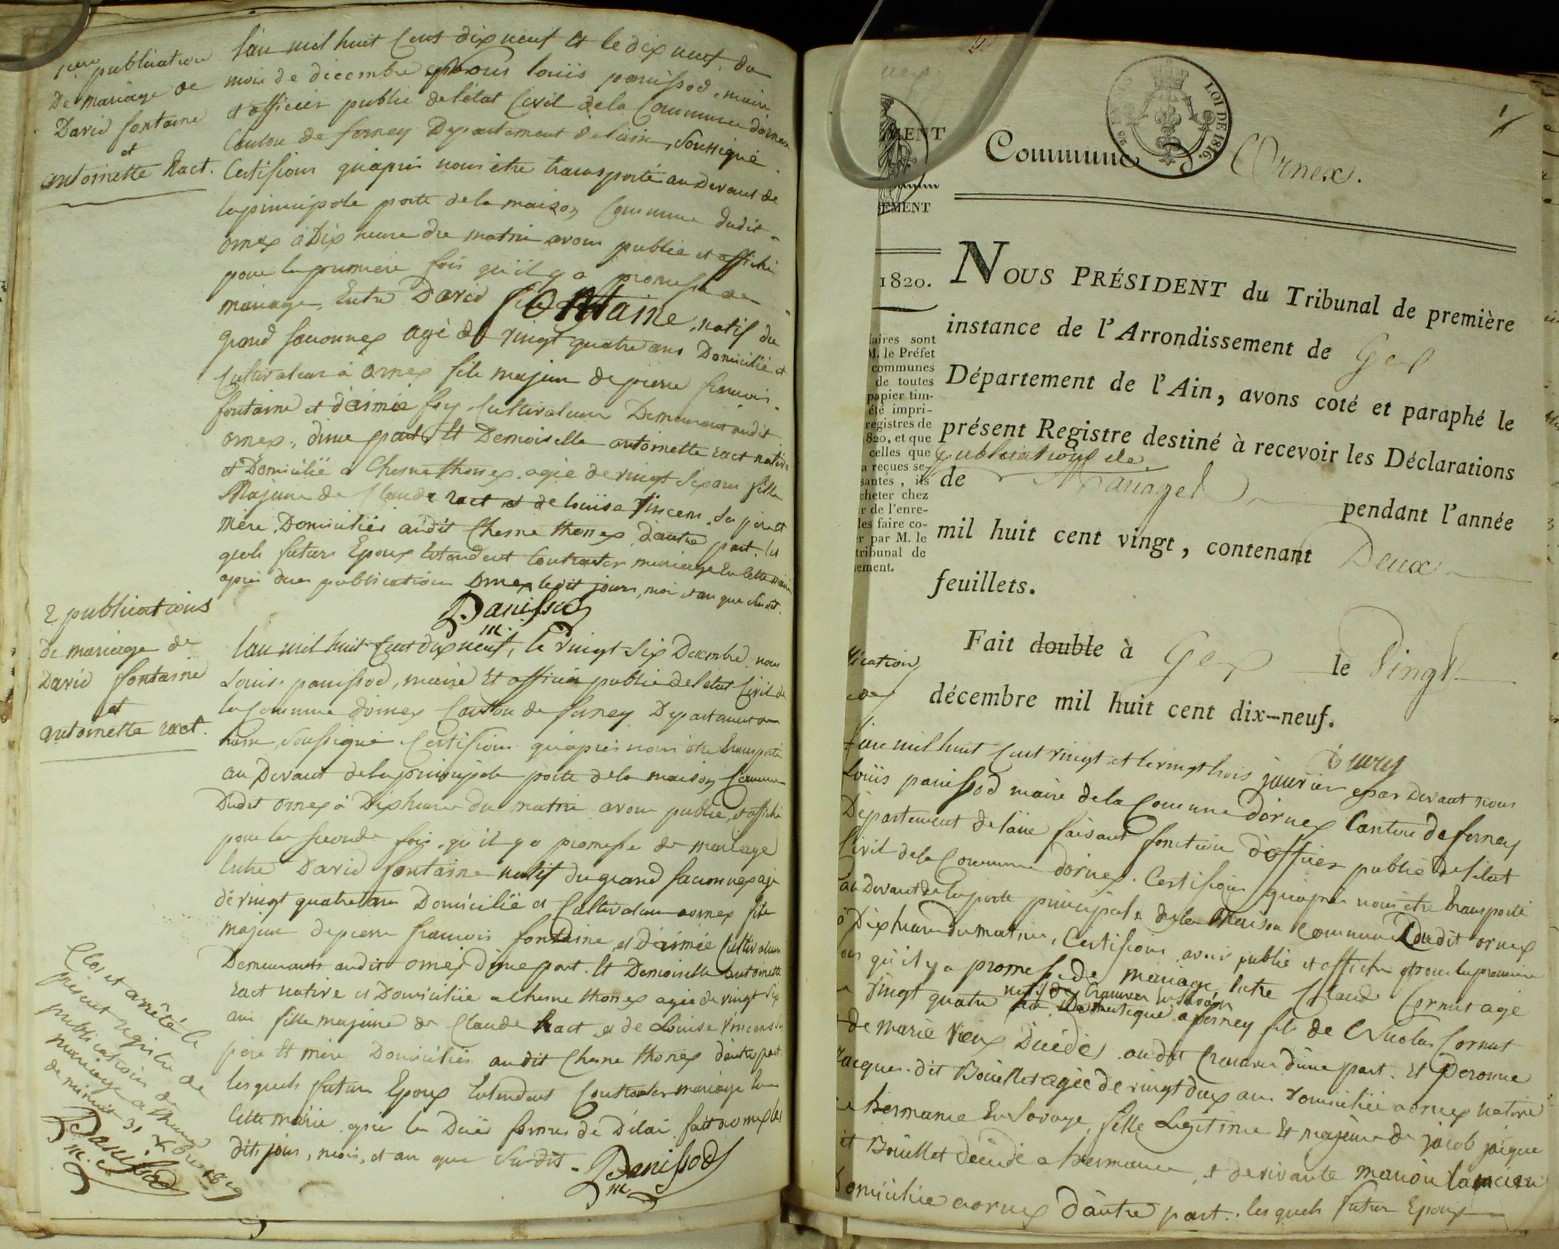 1ere publication
De mariage de
David fontaine
et
antoinette Ract.
l'an mil huit Cent dix neuf et le dix neuf du
mois de décembre nous louis panissod, maire
et officier public de l'état Civil de la Commune d'ornex
Canton de ferney Département de l'ain, Soussigné
Certifions qu'après nous être transporté au Devant de
la principale porte de la maison Commune dudit
ornex à Dix heure du matin avons publié et affiché
pour la première fois qu'il y a promesse de
mariage, Entre David Fontaine, natif du
grand saconnex agé de vingt quatre ans Domicilié et
Cultivateur à ornex fils majeur de pierre francois
fontaine et d'aimée Cultivateur Demeurant audit
ornex, d'une part, Et Demoiselle antoinette ract native
et Domicilié a Chesne thonex agée de vingt six ans fille
Majeure de Claude ract et de louise Vincens. Ses père et
mère Domiciliés audit Chesne thonex d'autre part. les
quels futurs Epoux Entendent Contracter mariage En cette mairie
après deux publications Ornex le dit jours, mois et an que dessus.
Panissod
m.
2 publications
de mariage de
David fontaine
et
antoinette ract.
l'an mil huit Cent dix neuf, le vingt Six Décembre nous
Louis panissod, maire Et officier public de l'état Civil de
la Commune d'ornex Canton de ferney Département de
l'ain, Soussigné Certifions qu'après nous être transporté
au Devant de la principale porte de la maison Commune
Dudit ornex à Dix heure du matin avons publié, et affiché
pour la seconde fois, qu'il y a promesse de mariage
Entre David fontaine natif du grand saconnex agé
de vingt quatre ans Domicilié et Cultivateur a ornex fils
majeur de pierre francois fontaine et d'aimée Cultivateur
Demeurants audit ornex d'une part. Et Demoiselle antoinette
ract native et Domiciliée a Chesne thonex agée de vingt six
ans fille majeure de Claude Ract et de Louise Vincens
père et mère Domiciliés audit Chesne thonex d'autre part
lesquels futurs Epoux Entendent Contracter mariage En
Cette mairie après le Délai fait a ornex les
dits jour, mois, et an que Susdit.
Panissod
m.
Clos et arrêté le
présent registre de
publication de
mariage a
de minuit 31 Xbre 1819
Panissod
m.
MENT
EMENT
LOI DE 1816.
1
Commune d'Ornex.
1820.
NOUS PRÉSIDENT du Tribunal de première
instance de l'Arrondissement de Gex
Département de l'Ain, avons coté et paraphé le
présent Registre destiné à recevoir les Déclarations
publications de
de Mariages pendant l'année
mil huit cent vingt, contenant Deux
feuillets.
Fait double à Gex le Vingt
décembre mil huit cent dix-neuf.
laires sont
M. le Préfet
communes
de toutes
papier tim-
été impri-
registres de
820, et que
celles que
a reçues se-
santes, ils
cheter chez
r de l'enre-
les faire co-
r par M. le
tribunal de
ement.
lication
de
l'an mil huit Cent vingt et le vingt trois janvier par Devant nous
Louis panissod maire de la Commune d'ornex Canton de ferney
Département de l'ain faisant fonction d'officier public de l'état
Civil de la Commune d'ornex. Certifions qu'après nous être transporté
au Devant de la porte principale de la Maison Commune Dudit ornex
à Dix heure du matin, Certifions avoir publié et affiché pour la première
fois qu'il y a promesse de mariage, Entre Claude Cornut agé
natif de En Savoye
de vingt quatre ans Domestique a ferney fils de Nicolas Cornut
et de marie Vieux Décédés audit d'une part. Et Peronne
Jacques dit Bouillet agée de vingt deux ans Domiciliée a ornex native
de hermance En Savoye, fille Legitime Et majeure de jacob jacque
dit Bouillet décédé a hermance, et de vivante marion
Domiciliée a ornex d'autre part. lesquels futurs Epoux